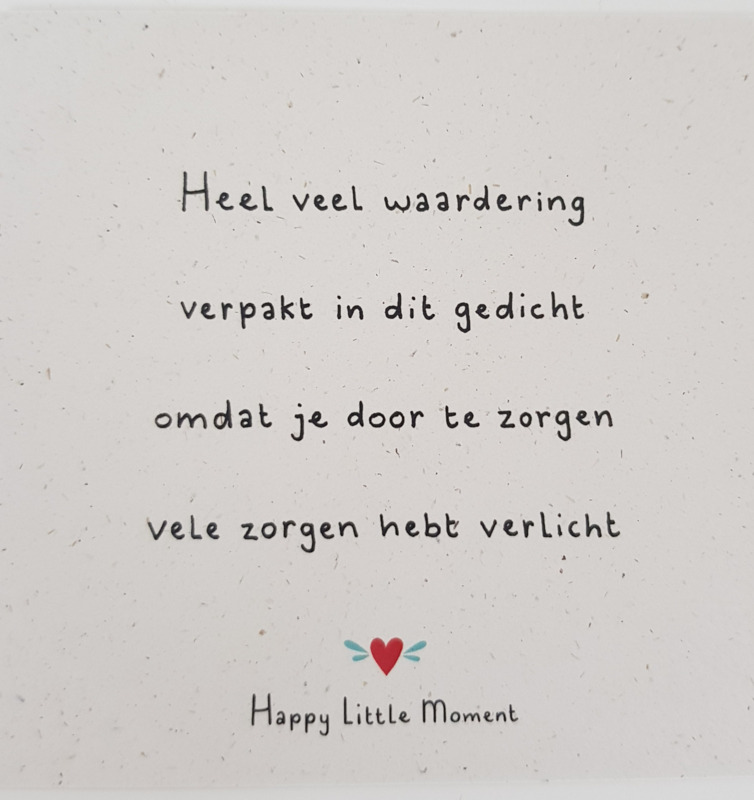 Heel veel waardering
verpakt in dit gedicht
omdat je door te zorgen
vele zorgen hebt verlicht
Happy Little Moment